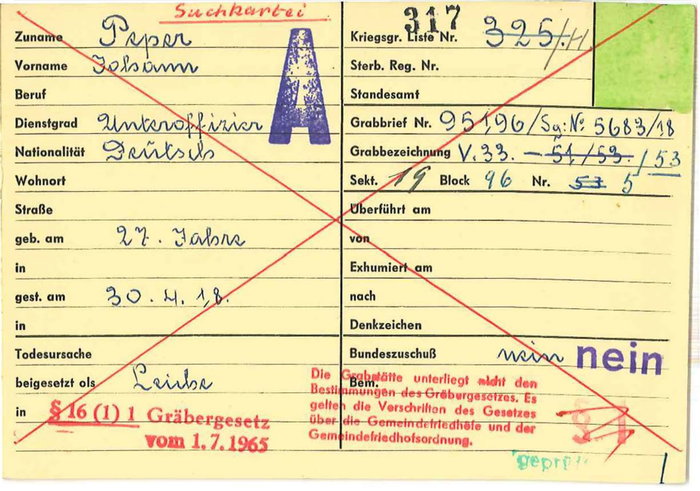 Suchkartei
Zuname Peper
Vorname Johann
Beruf
Dienstgrad Unteroffizier
Nationalität Deutsch
Wohnort
Straße
geb. am 27. Jahre
in
gest. am 30.4.18.
in
Todesursache
beigesetzt als Leiche
in
§ 16 (1) 1 Gräbergesetz
vom 1.7.1965
A
317
Kriegsgr. Liste Nr. 325/11
Sterb. Reg. Nr.
Standesamt
Grabbrief Nr. 95196/Sg: No 5683/18
Grabbezeichnung V. 33. - 51/53. / 53
Sekt. 19 Block 96 Nr. 53 5
Überführt am
von
Exhumiert am
nach
Denkzeichen
Bundeszuschuß nein nein
Bem.
Die Grabstätte unterliegt nicht den
Bestimmungen des Gräbergesetzes. Es
gelten die Vorschriften des Gesetzes
über die Gemeindefriedhöfe und der
Gemeindefriedhofsordnung.